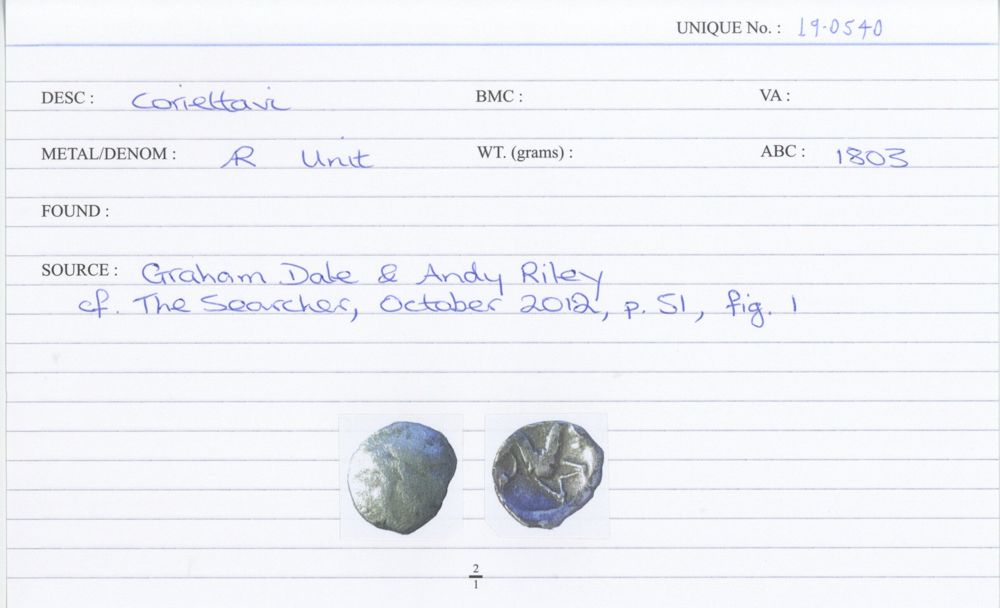 UNIQUE No. : 19-0540
DESC : Corieltavi BMC : VA :
METAL/DENOM : AR Unit WT. (grams) : ABC : 1803
FOUND :
SOURCE : Graham Dale & Andy Riley
cf. The Searcher, October 2012, p. 51, fig. 1
2
1